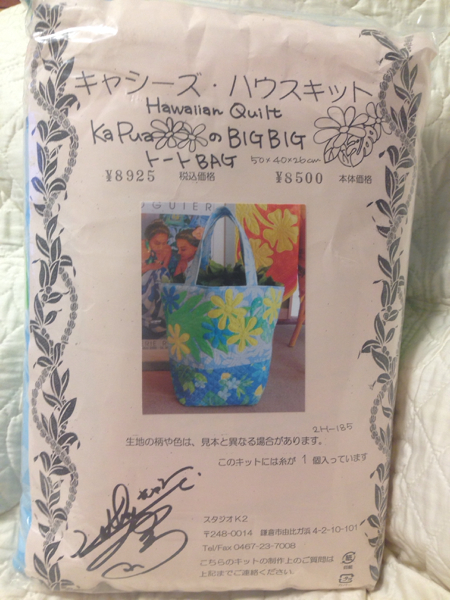 キャシーズ・ハウスキット
Hawaiian Quilt
Ka PuaのBIG BIG
トートBAG 50×40×26cm
¥8925 税込価格 ¥8500 本体価格
OGUIER
2H-185
生地の柄や色は、見本と異なる場合があります。
このキットには糸が 1 個入っています
スタジオK2
〒248-0014 鎌倉市由比ガ浜4-2-10-101
Tel/Fax 0467-23-7008
こちらのキットの制作上のご質問は
上記までご連絡ください。